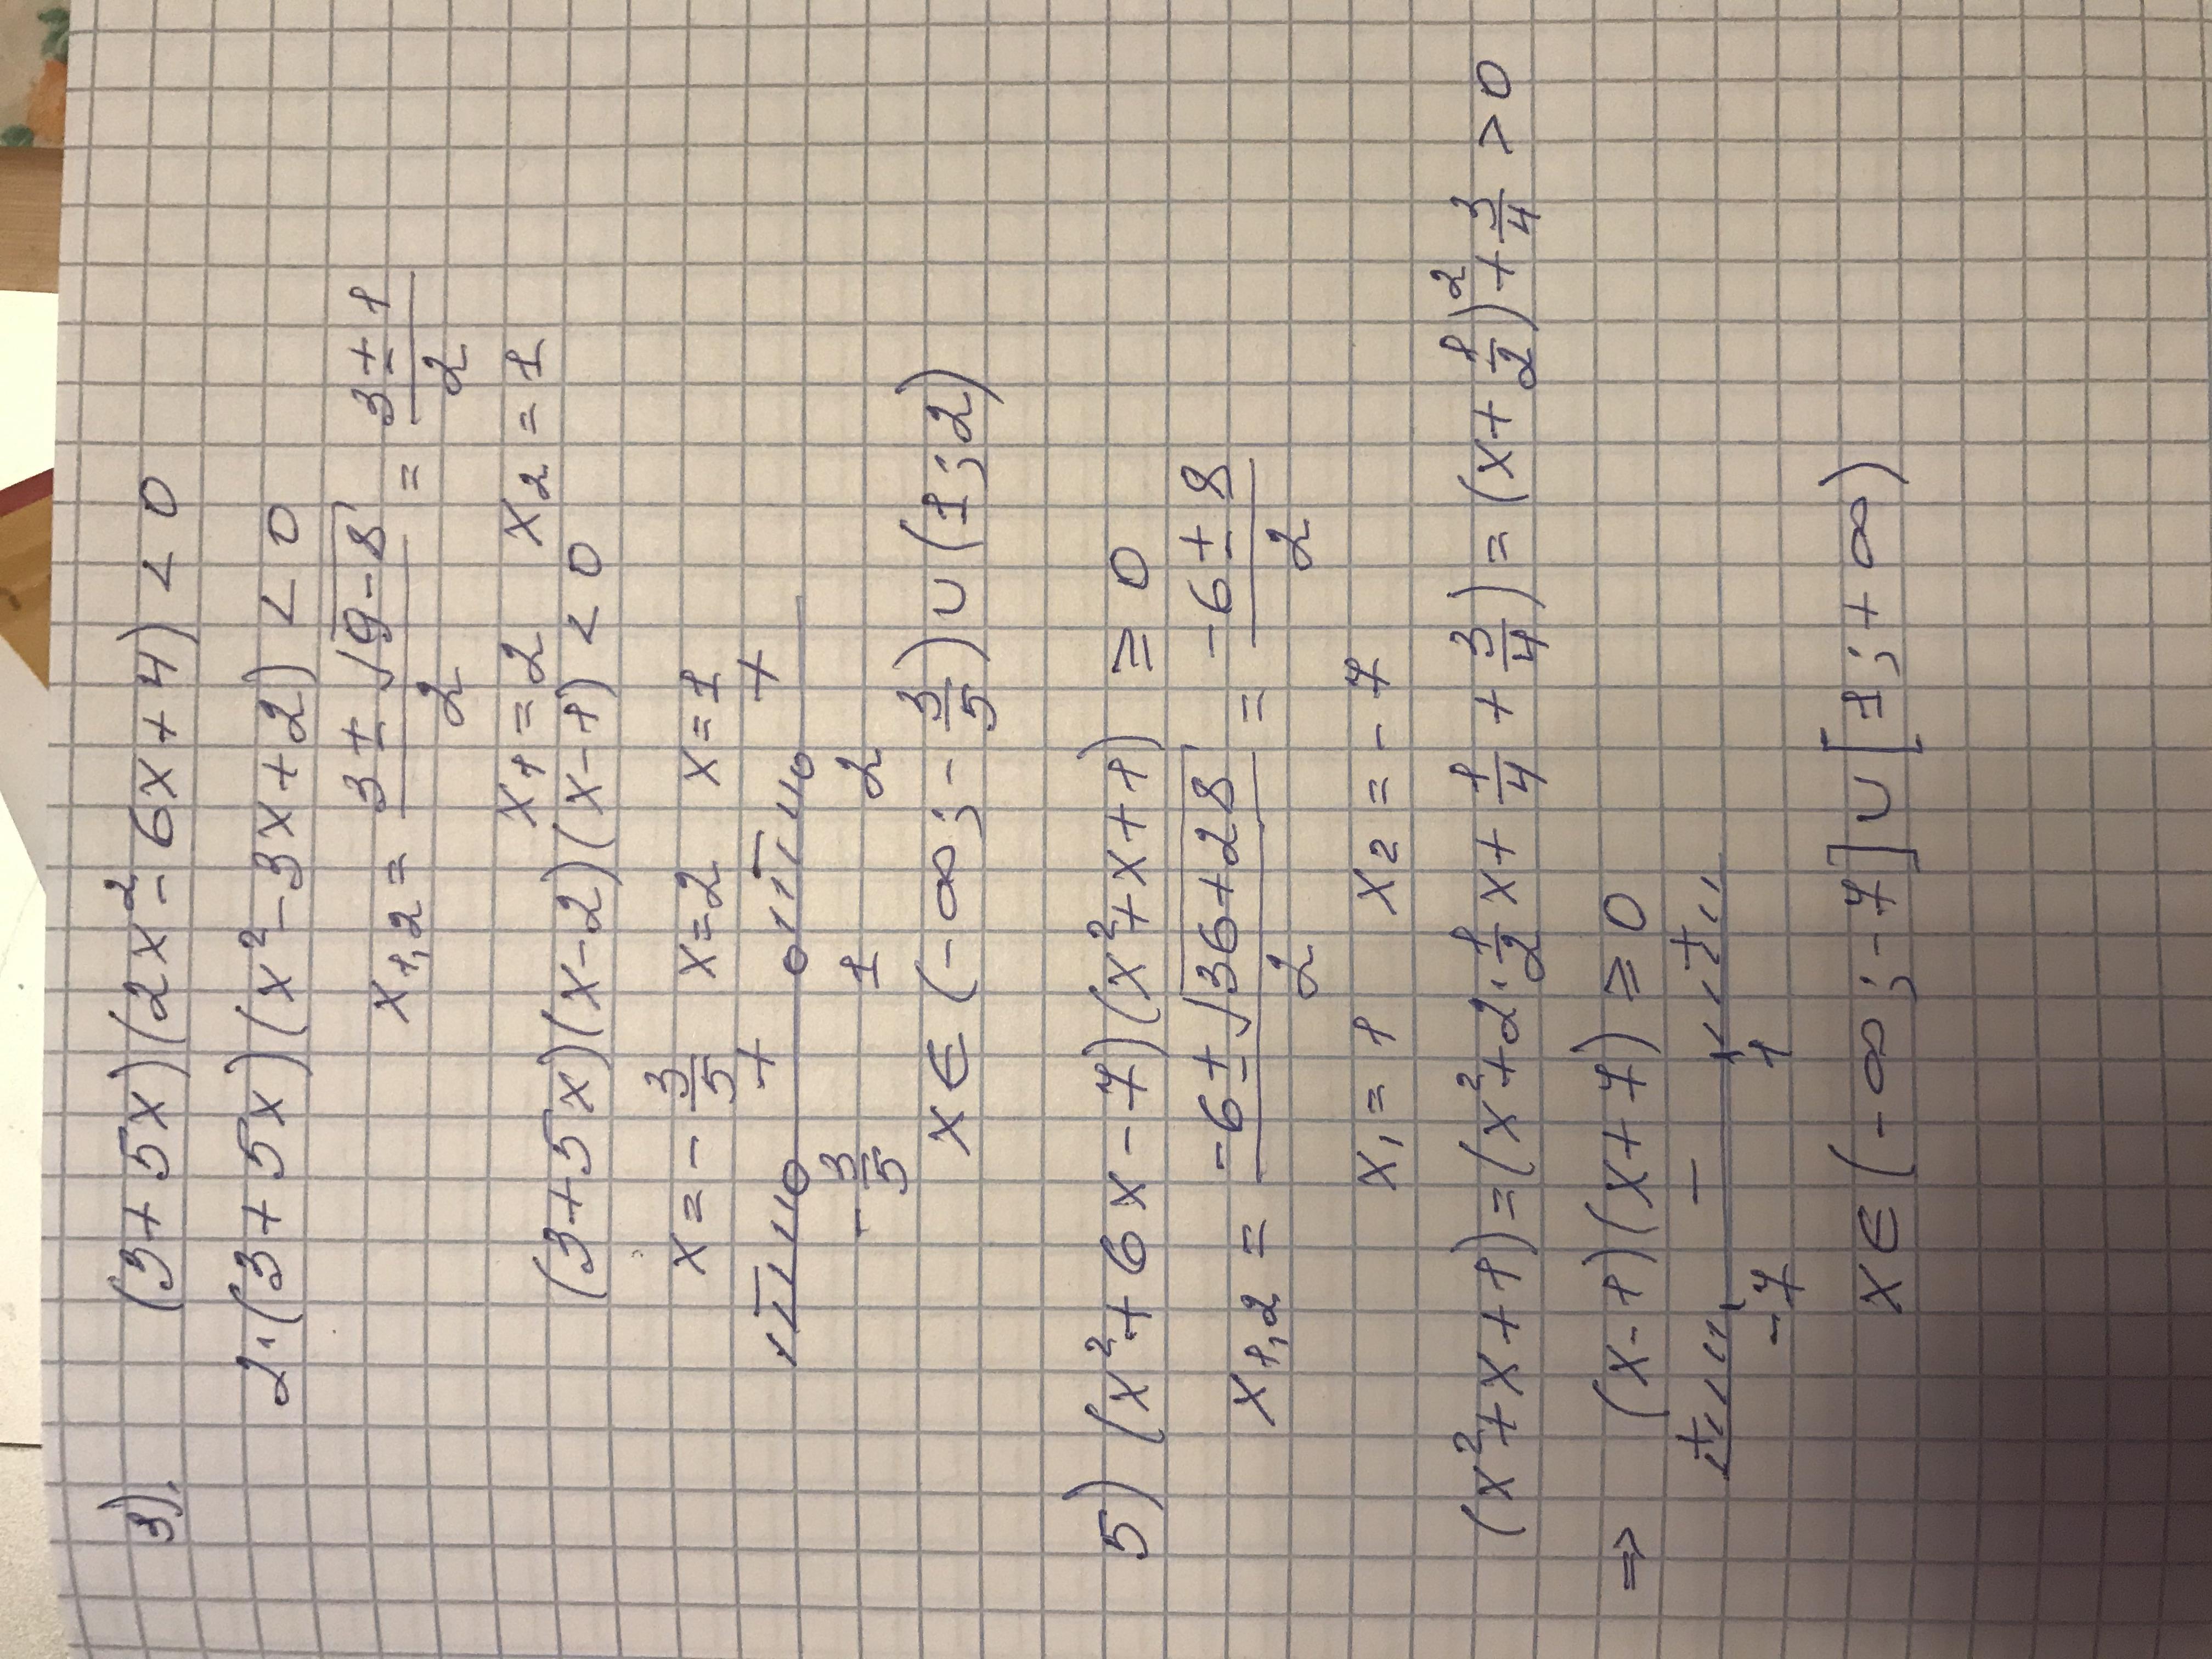 3). (3+5x)(2x²-6x+4) < 0
2·(3+5x)(x²-3x+2) < 0
x₁,₂ = (3±√(9-8))/2 = (3±1)/2
x₁=2 x₂=1
(3+5x)(x-2)(x-1) < 0
x=-3/5 x=2 x=1
- + - +
-3/5 1 2
x ∈ (-∞; -3/5) ∪ (1; 2)
5) (x²+6x-7)(x²+x+1) ≥ 0
x₁,₂ = (-6±√(36+28))/2 = (-6±8)/2
x₁=1 x₂=-7
(x²+x+1)=(x²+2·1/2x+1/4+3/4)=(x+1/2)²+3/4 > 0
⇒ (x-1)(x+7) ≥ 0
+ - +
-7 1
x ∈ (-∞; -7] ∪ [1; +∞)